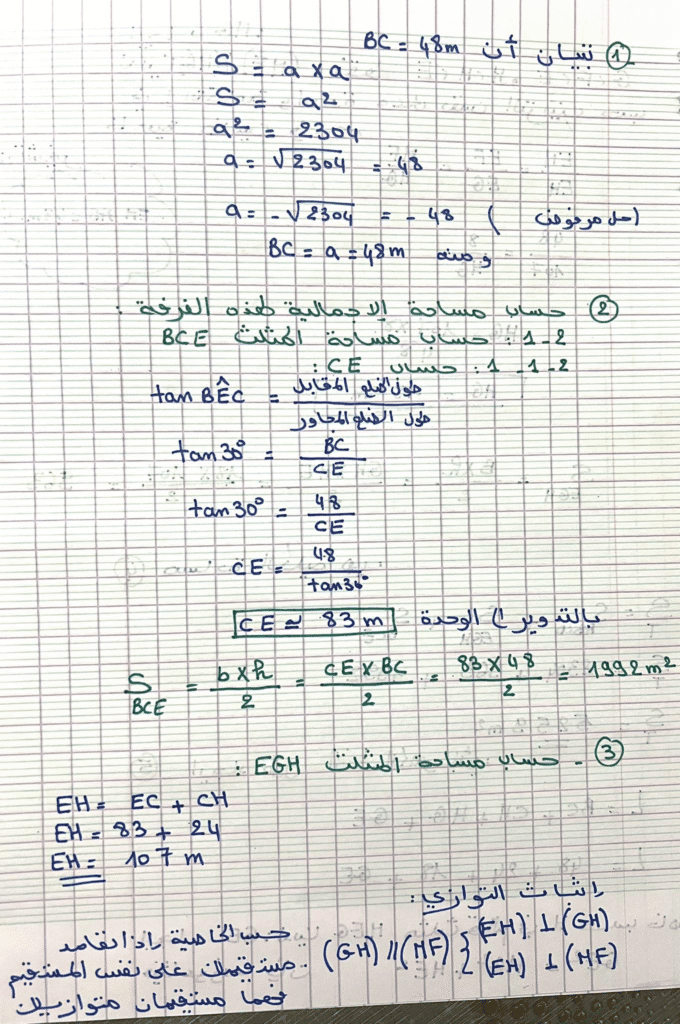 ① تبيان أن BC = 48m
S = a x a
S = a²
a² = 2304
a = √2304 = 48
a = -√2304 = - 48 (حل مرفوض)
ومنه BC = a = 48m
② حساب مساحة الاجمالية لهذه الغرفة :
2-1 : حساب مساحة المثلث BCE
2-1-1 : حساب CE :
tan BÊC = طول الضلع المقابل / طول الضلع المجاور
tan 30° = BC / CE
tan 30° = 48 / CE
CE = 48 / tan 30°
بالتدوير إلى الوحدة CE ≃ 83 m
S BCE = b x h / 2 = CE X BC / 2 = 83 X 48 / 2 = 1992 m²
③ - حساب مساحة المثلث EGH :
EH = EC + CH
EH = 83 + 24
EH = 107 m
إثبات التوازي :
(GH) // (MF) { (EH) ⊥ (GH)
(EH) ⊥ (MF)
حسب الخاصية إذا تعامد
مستقيمان على نفس المستقيم
فهما مستقيمان متوازيان